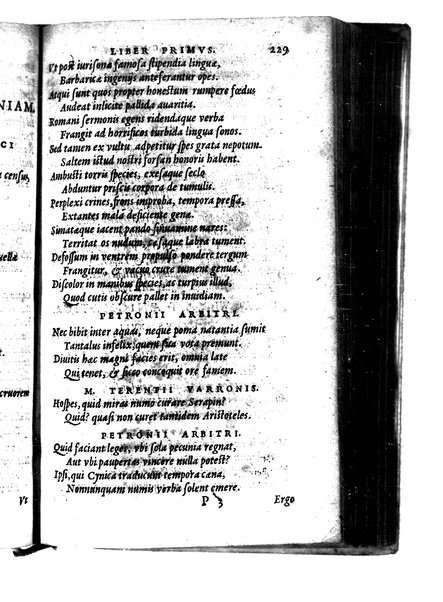 LIBER PRIMVS. 229
Vt post iurisona famosa stipendia linguæ,
Barbaricæ ingenijs anteferantur opes.
Atqui sunt quos propter honestum rumpere fœdus
Audeat inlicite pallida auaritia.
Romani sermonis egens ridendaque verba
Frangit ad horrificos turbida lingua sonos.
Sed tamen ex vultu adpetitur spes grata nepotum.
Saltem istud nostri forsan honoris habent.
Ambusti torris species, exesaque seclo
Abduntur priscis corpora de tumulis.
Perplexi crines, frons improba, tempora pressa,
Extantes mala deficiente genæ.
Simatæque iacent pando sinuamine nares:
Territat os nudum, cæsaque labra tument.
Defossum in ventrem propulso pondere tergum
Frangitur, & vacuo crure tument genua.
Discolor in manibus species, ac turpius illud,
Quod cutis obscure pallet in inuidiam.
PETRONII ARBITRI.
Nec bibit inter aquas, neque poma natantia sumit
Tantalus infelix, quem sua vota premunt.
Diuitis hæc magni facies erit, omnia late
Qui tenet, & sicco concoquit ore famem.
M. TERENTII VARRONIS.
Hospes, quid miras numo curare Serapin?
Quid? quasi non curet tantidem Aristoteles.
PETRONII ARBITRI.
Quid faciant leges, vbi sola pecunia regnat,
Aut vbi paupertas vincere nulla potest?
Ipsi, qui Cynica traducunt tempora cæna,
Nonnunquam numis verba solent emere.
P 3 Ergo
NIAM,
CI
census,
cruorem
Vt